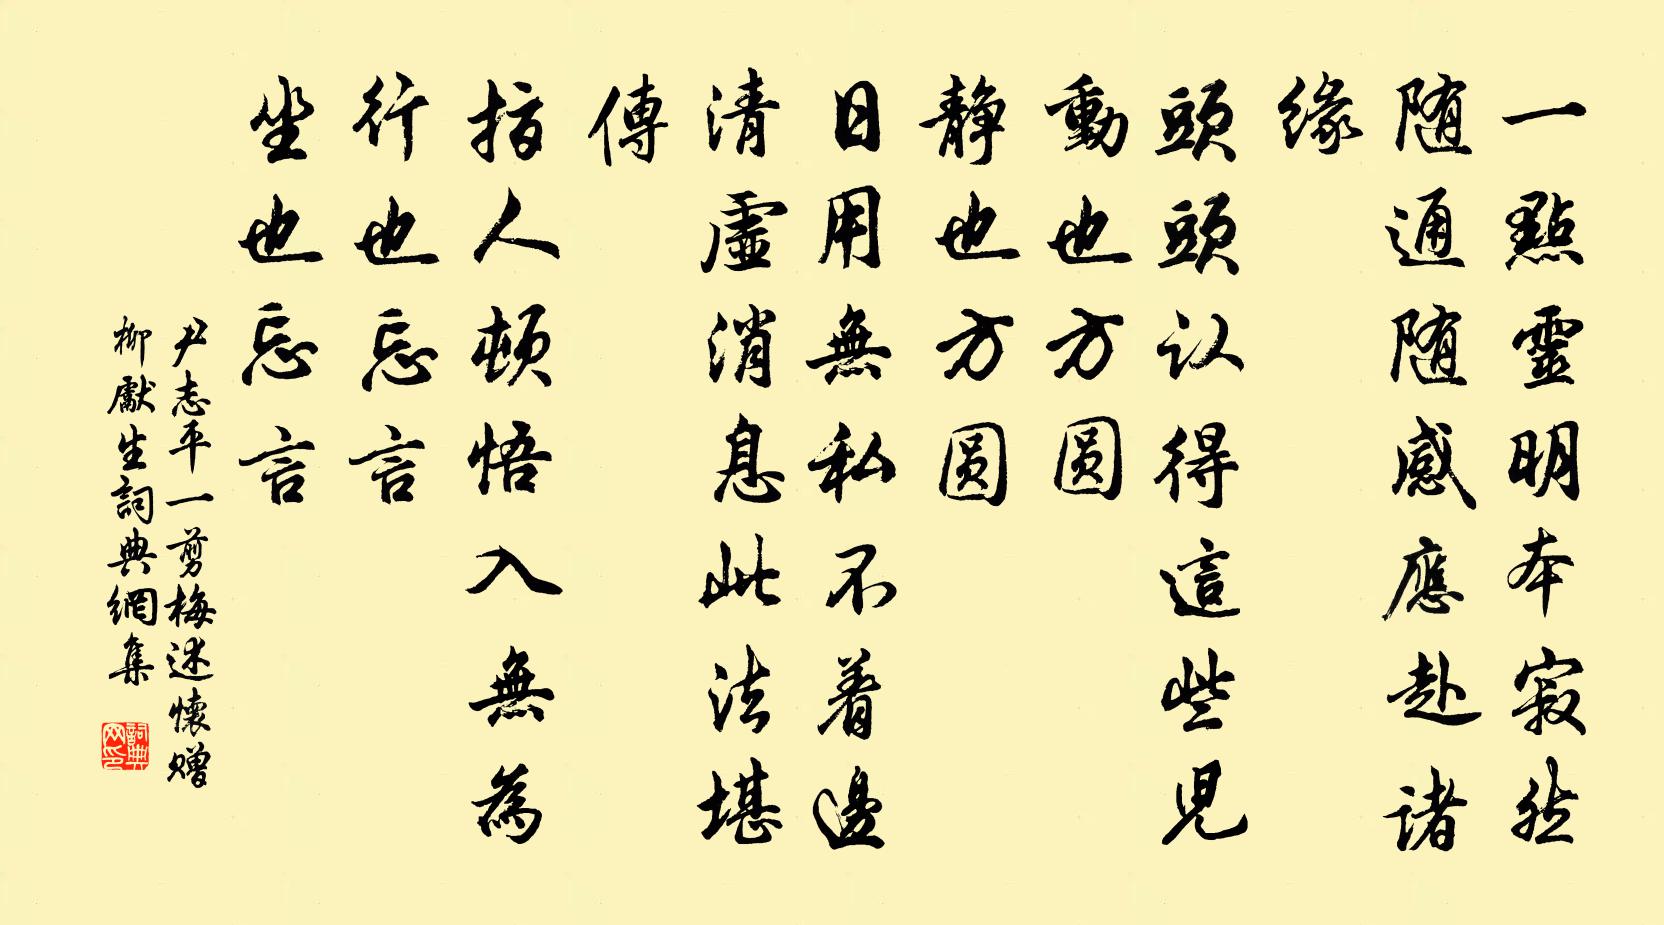 一點靈明本寂然
随通随感應赴諸
緣
頭頭认得這些児
動也方圆
静也方圆
日用無私不着邊
清虛消息此法堪
傳
指人頓悟入無為
行也忘言
坐也忘言
尹志平一剪梅述懷贈
柳獻生詞典網集
詞典
网印